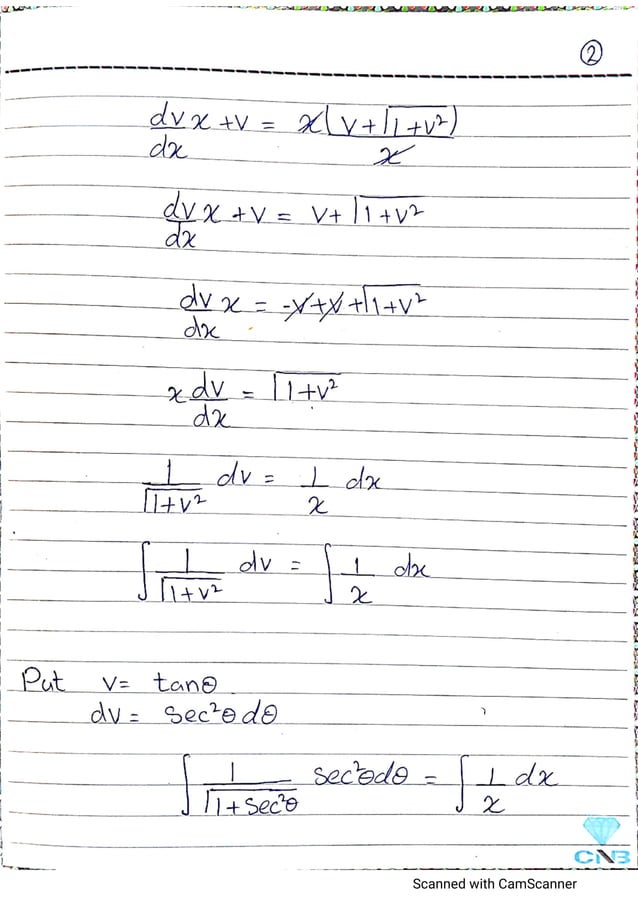 ②
dv/dx x + v = x(v + √(1+v²))/x
dv/dx x + v = v + √(1+v²)
dv/dx x = -v + v + √(1+v²)
x dv/dx = √(1+v²)
1/√(1+v²) dv = 1/x dx
∫ 1/√(1+v²) dv = ∫ 1/x dx
Put v = tanθ
dv = sec²θ dθ
∫ 1/√(1+sec²θ) sec²θdθ = ∫ 1/x dx
CNB
Scanned with CamScanner